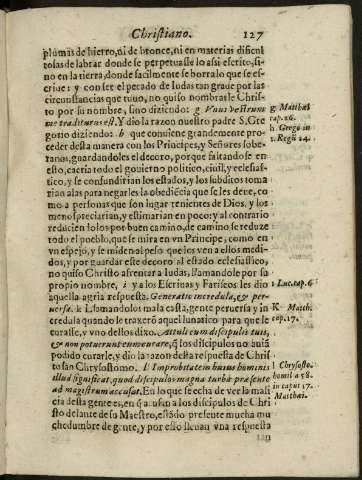 Christiano. 127
plumas de hierro, ni de bronce, ni en materias dificul
tosas de labrar donde se perpetuasse lo assi escrito, si-
no en la tierra, donde facilmente se borra lo que se es-
criue: y con ser el pecado de Iudas tan graue por las
circunstancias que tuuo, no quiso nombrarle Chris-
to por su nombre, sino diziendo: g Vnus vestrum
me traditurus est. Y dio la razon nuestro padre S. Gre
gorio diziendo: h que conuiene grandemente pro-
ceder desta manera con los Principes, y Señores sobe-
ranos, guardandoles el decoro, porque faltandose en
esto, caeria todo el gouierno politico, ciuil, y eclesias-
tico, y se confundirian los estados, y los subditos toma
rian alas para negarles la obediēcia que se les deue, co
mo a personas que son lugar tenientes de Dios, y los
menospreciarian, y estimarian en poco: y al contrario
reducien lo los por buen camino, de camino se reduze
todo el pueblo, que se mira en vn Principe, como en
vn espejo, y se mide n al peso que los ven a ellos medi-
dos, y por guardar este decoro al estado eclesiastico,
no quiso Christo afrentar a Iudas, llamandole por su
propio nombre, i y a los Escriuas y Fariseos les dio
aquella agria respuesta. Generatio incredula, & per-
uersa. k Llamandolos mala casta, gente peruersa y in-
credula quando le traxerō aquel lunatico para que le
curasse, y vno dellos dixo. Attuli eum discipulis tuis,
& non potuerunt eum curare, q̄ los discipulos no auiā
podido curarle, y dio la razon desta respuesta de Chris
to san Chrysostomo. l Improbitatem huius hominis
illud significat, quod discipulos magna turba præsente
ad magistrum accusat. En lo que se echa de ver la mali
cia desta gente es, en q̄ acusan a los discipulos de Chri
sto delante de su Maestro, estādo presente mucha mu
chedumbre de gente, y por esso lleuan vna respuesta
tan
g Matthæi
cap. 26.
h Grego in
1. Reg. 24.
i Luc. cap. 6
K Matth.
cap. 17.
l Chrysosto.
homil a 58.
in caput 17.
Matthæi.